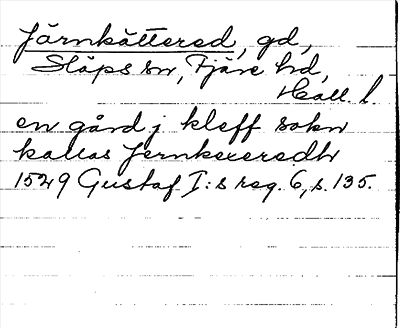 Järnkåttered, gd,
Släps sn, Fjäre hd,
Hall. l.
en gård j kleff sokn
kallas Jernkexeredh
1529 Gustaf I:s reg. 6, s. 135.